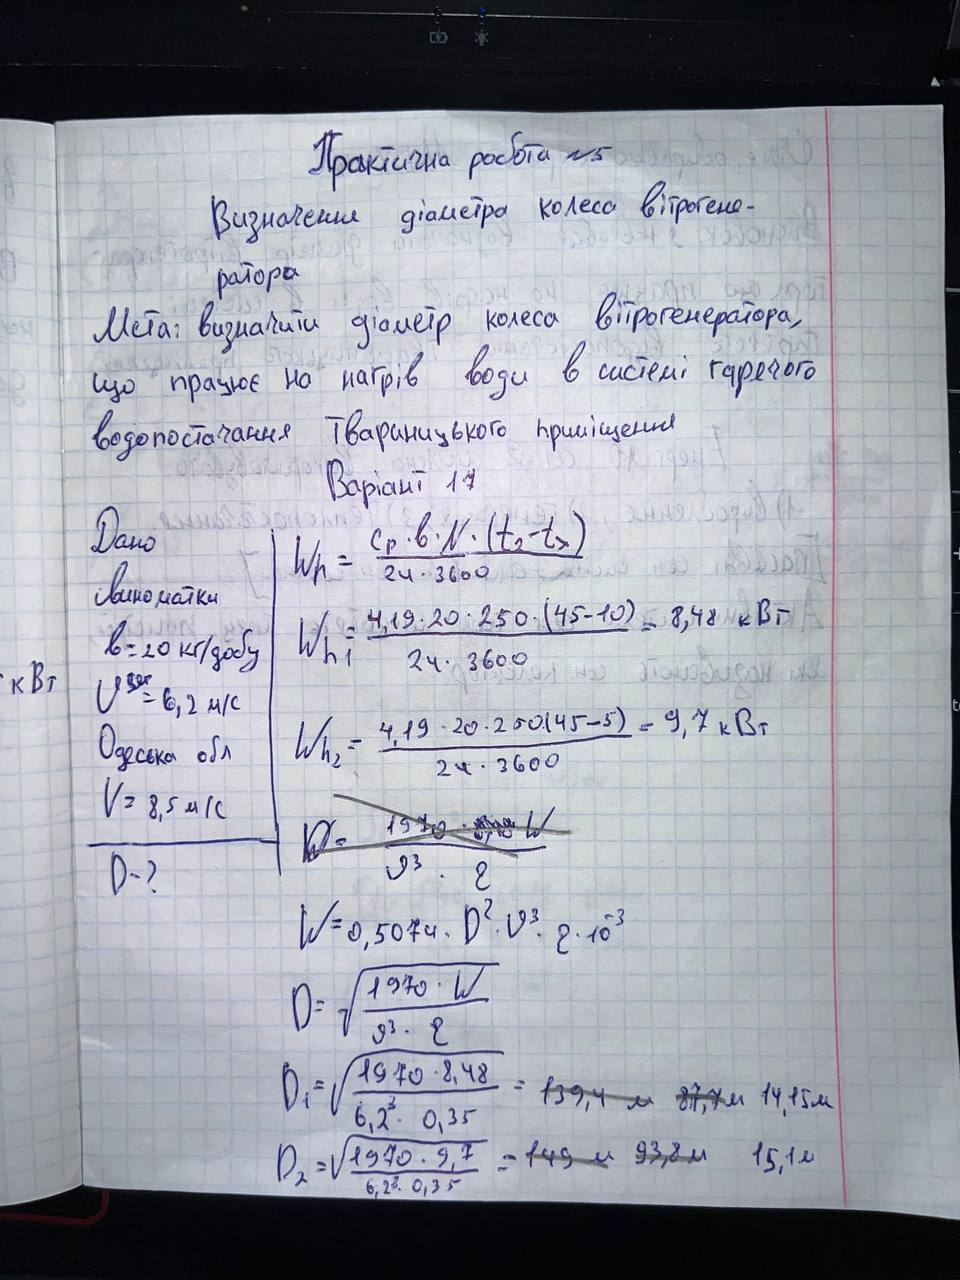 Практична робота №5
Визначення діаметра колеса вітрогене-
ратора
Мета: визначити діаметр колеса вітрогенератора,
що працює на нагрів води в системі гарячого
водопостачання твариницького приміщення
Варіант 17
Дано
свиноматки
b=20 кг/добу
= 6,2 м/с
Одеська обл
V= 8,5 м/с
D-?
кВт
Wh = cp·b·N·(t2-tx) / 24·3600
Wh1 = 4,19·20·250·(45-10) / 24·3600 = 8,48 кВт
Wh2 = 4,19·20·250·(45-5) / 24·3600 = 9,7 кВт
D= 1970 · W / υ³ · ξ
W=0,5074·D²·υ³·ξ·10⁻³
D= √(1970·W / υ³·ξ)
D1= √(1970·8,48 / 6,2³·0,35) = 139,4 м 87,7м 14,15м
D2= √(1970·9,7 / 6,2³·0,35) = 149 м 93,8м 15,1м